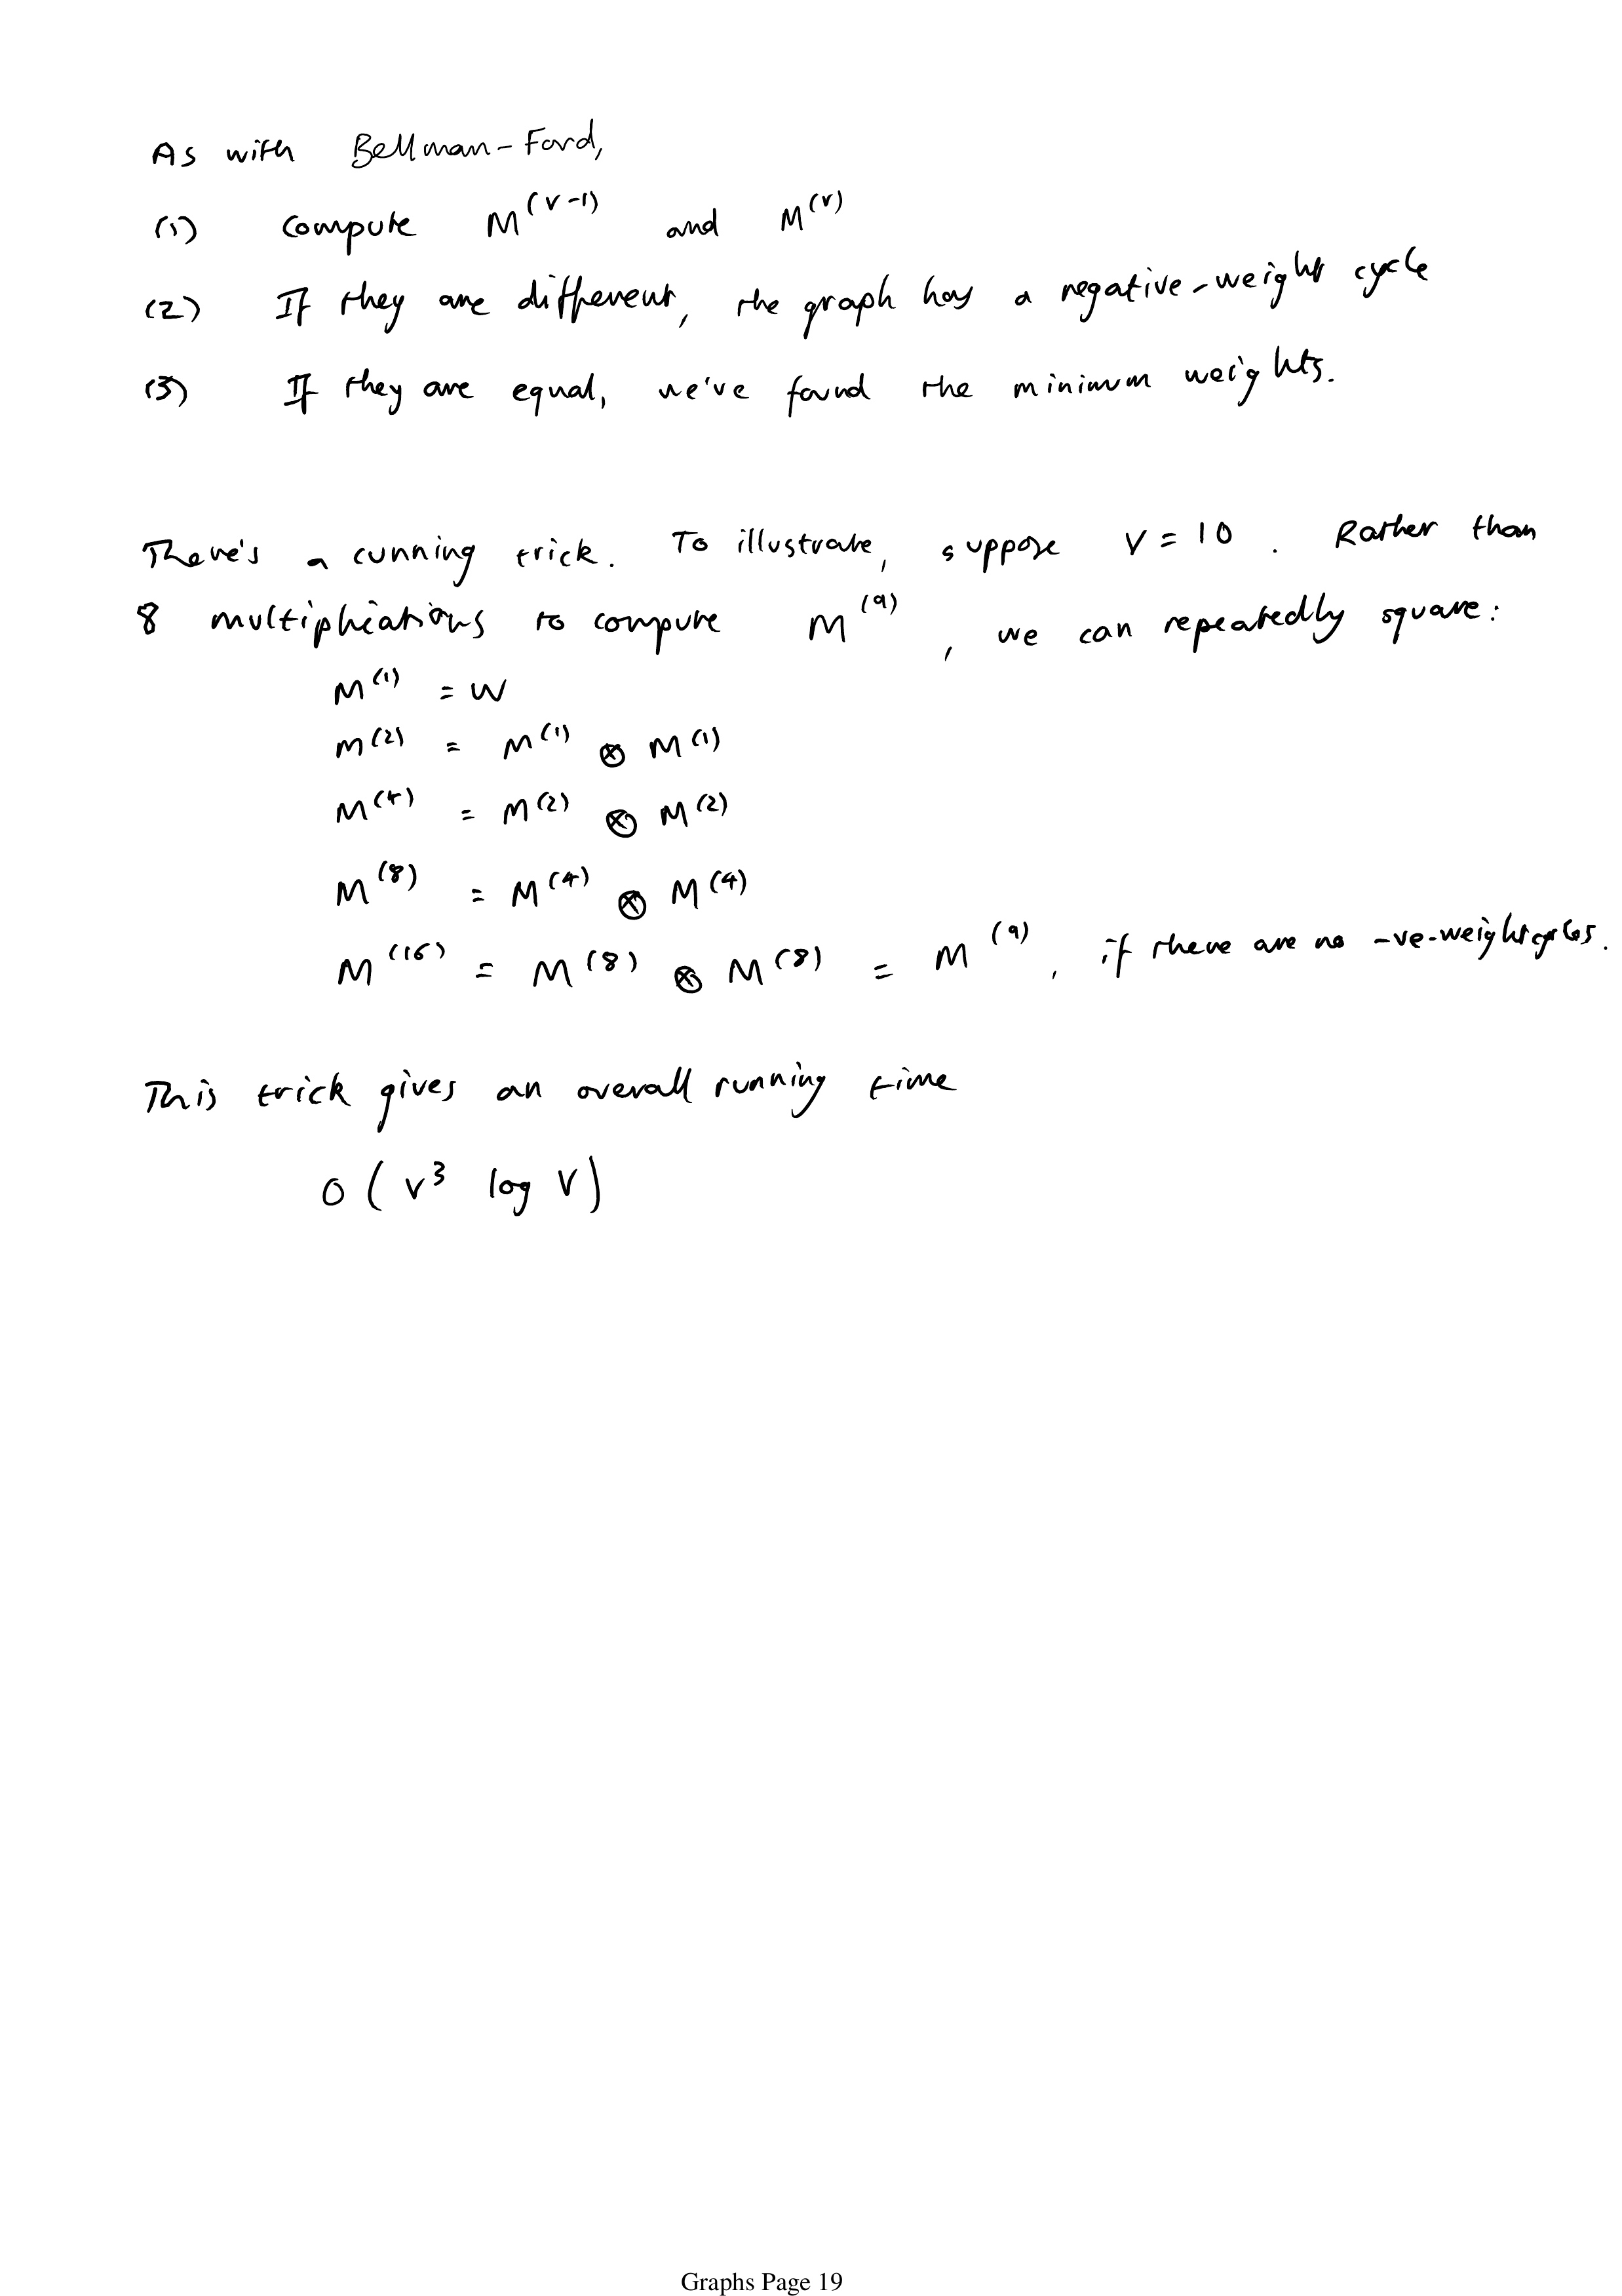 As with Bellman-Ford,
(1) compute M^(V-1) and M^(V)
(2) If they are different, the graph has a negative-weight cycle
(3) If they are equal, we've found the minimum weights.
There's a cunning trick. To illustrate, suppose V = 10. Rather than
8 multiplications to compute M^(9), we can repeatedly square:
M^(1) = W
M^(2) = M^(1) ⊗ M^(1)
M^(4) = M^(2) ⊗ M^(2)
M^(8) = M^(4) ⊗ M^(4)
M^(16) = M^(8) ⊗ M^(8) = M^(9), if there are no -ve-weight cycles.
This trick gives an overall running time
O(V³ log V)
Graphs Page 19